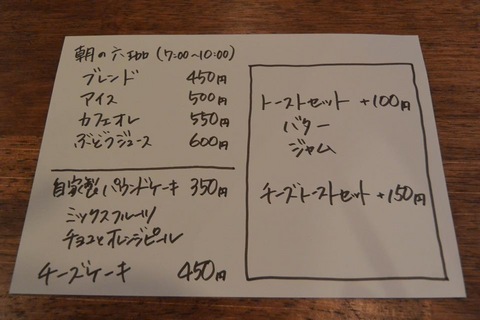 朝の六珈 (7:00~10:00)
ブレンド 450円
アイス 500円
カフェオレ 550円
ぶどうジュース 600円
自家製パウンドケーキ 350円
ミックスフルーツ
チョコとオレンジピール
チーズケーキ 450円
トーストセット +100円
バター
ジャム
チーズトーストセット +150円